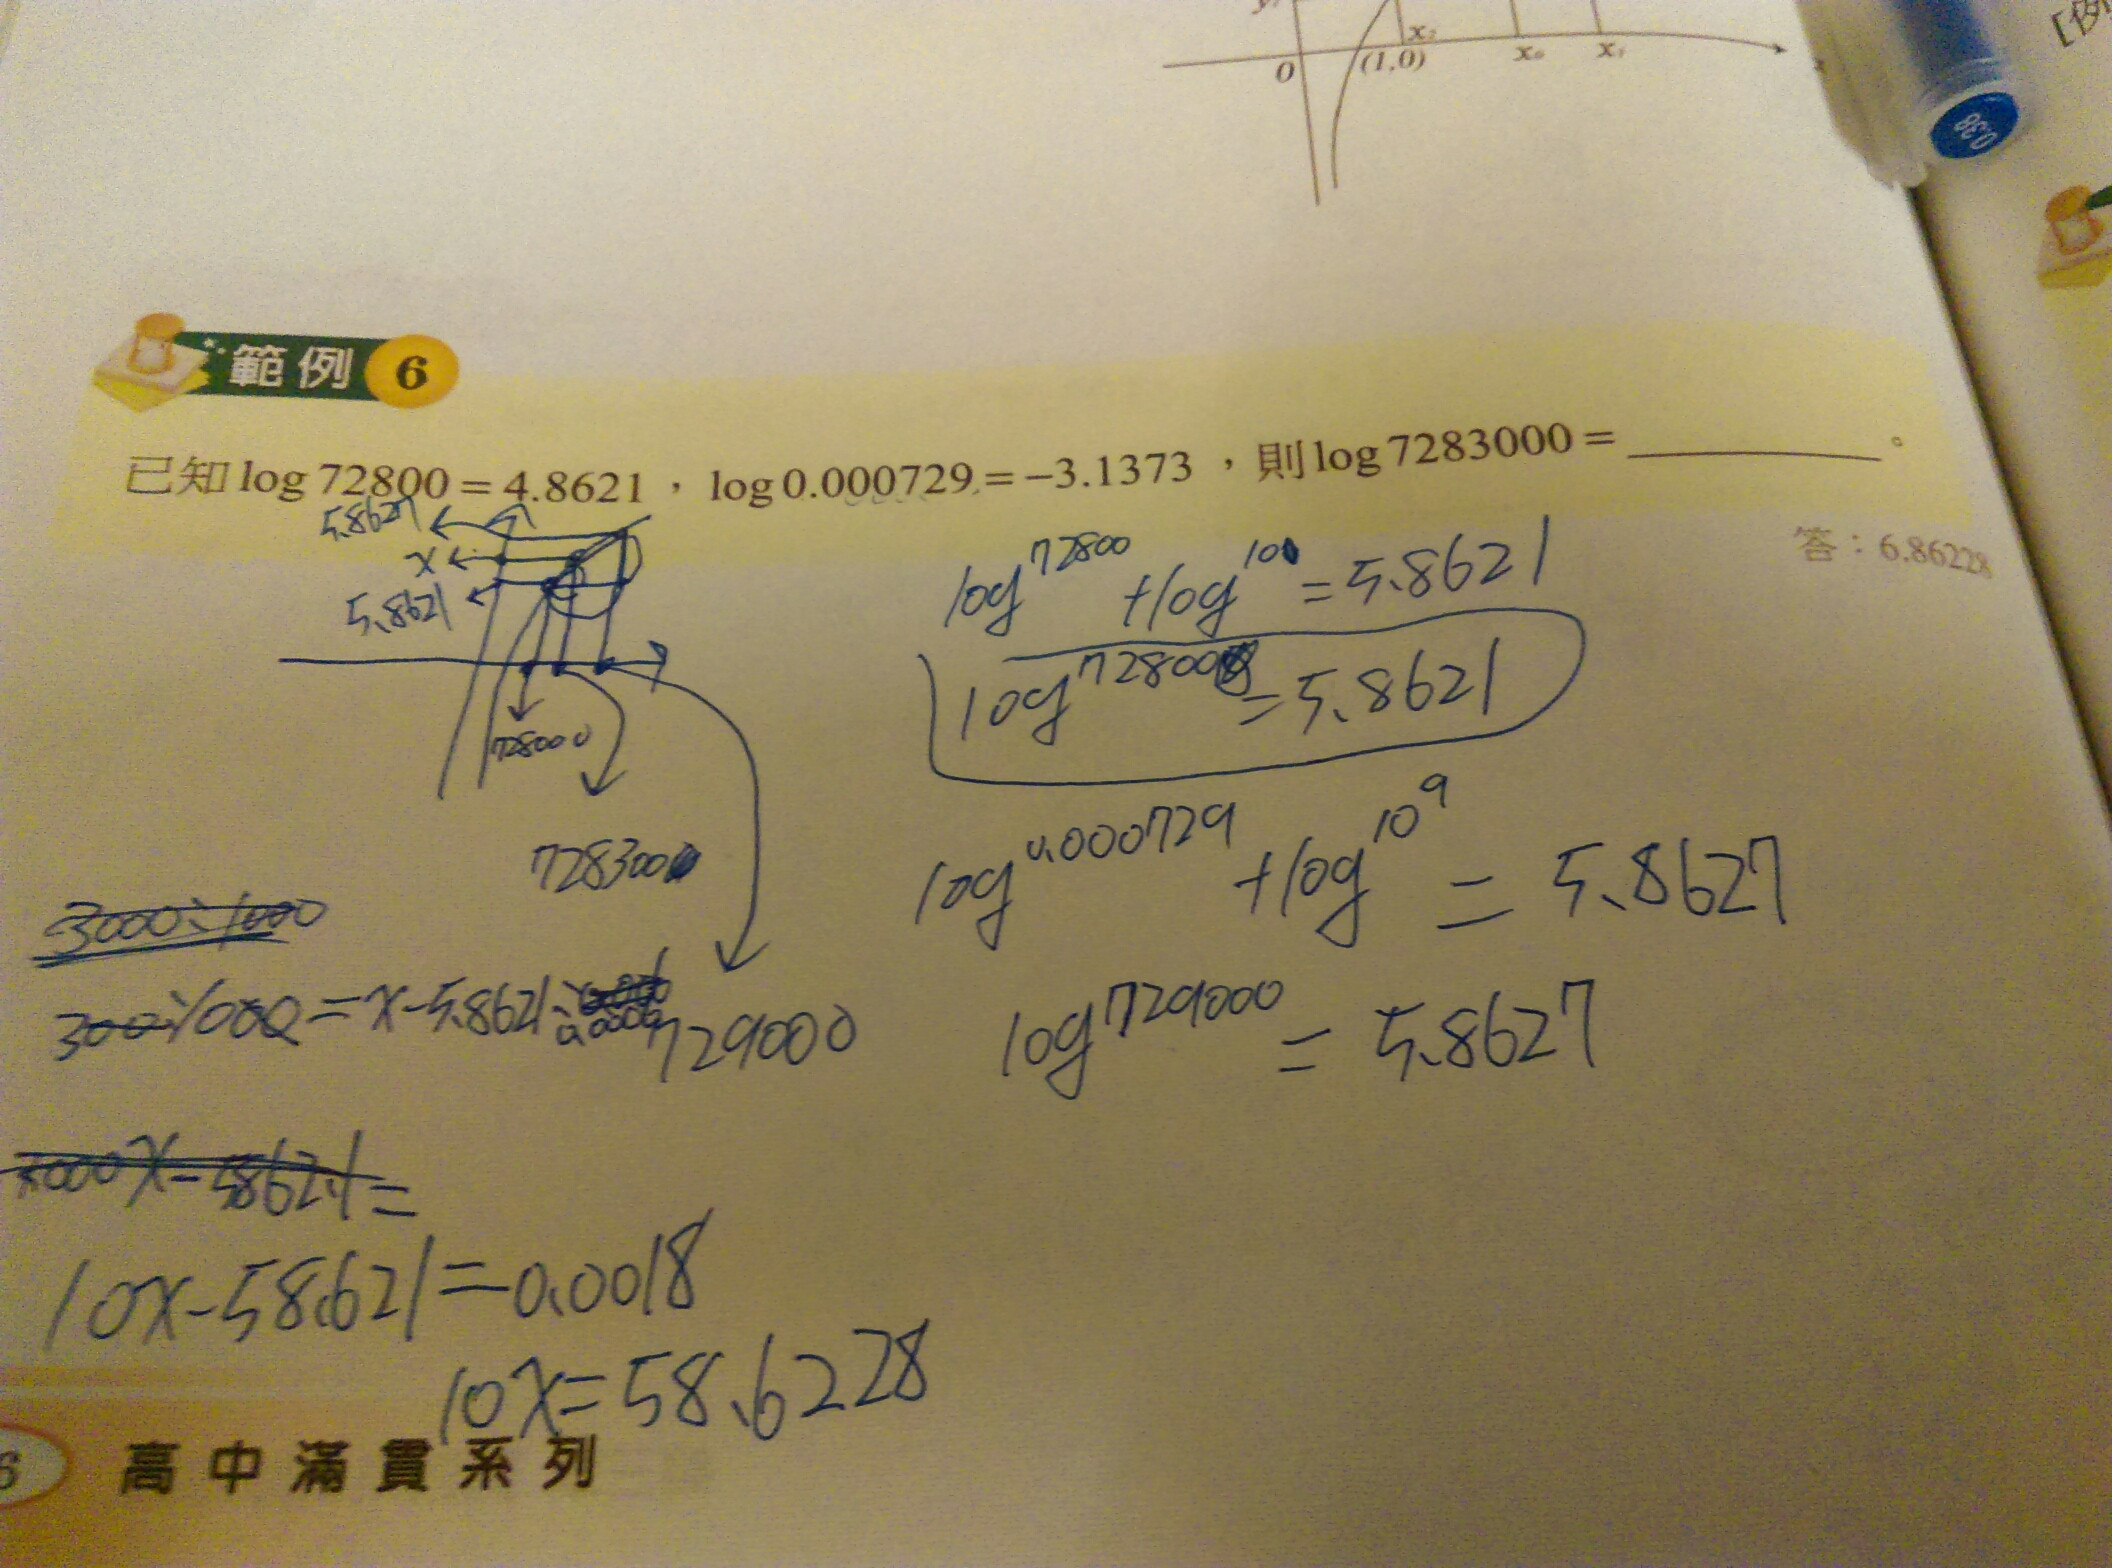 y₁
x₂
0.38
[例
O
(1,0)
x₀
x₁
範例 6
已知 log 72800 = 4.8621 ， log 0.000729 = −3.1373 ，則 log 7283000 = ________ 。
答：6.86228
5.8627
x
5.8621
728000
728300
729000
log^72800 + log^10 = 5.8621
log^728000 = 5.8621
log^0.000729 + log^10^9 = 5.8627
log^729000 = 5.8627
3000÷1000
300÷1000=x-5.8621÷0.0006
10x-58.621=0.0018
10x=58.6228
6
高中滿貫系列